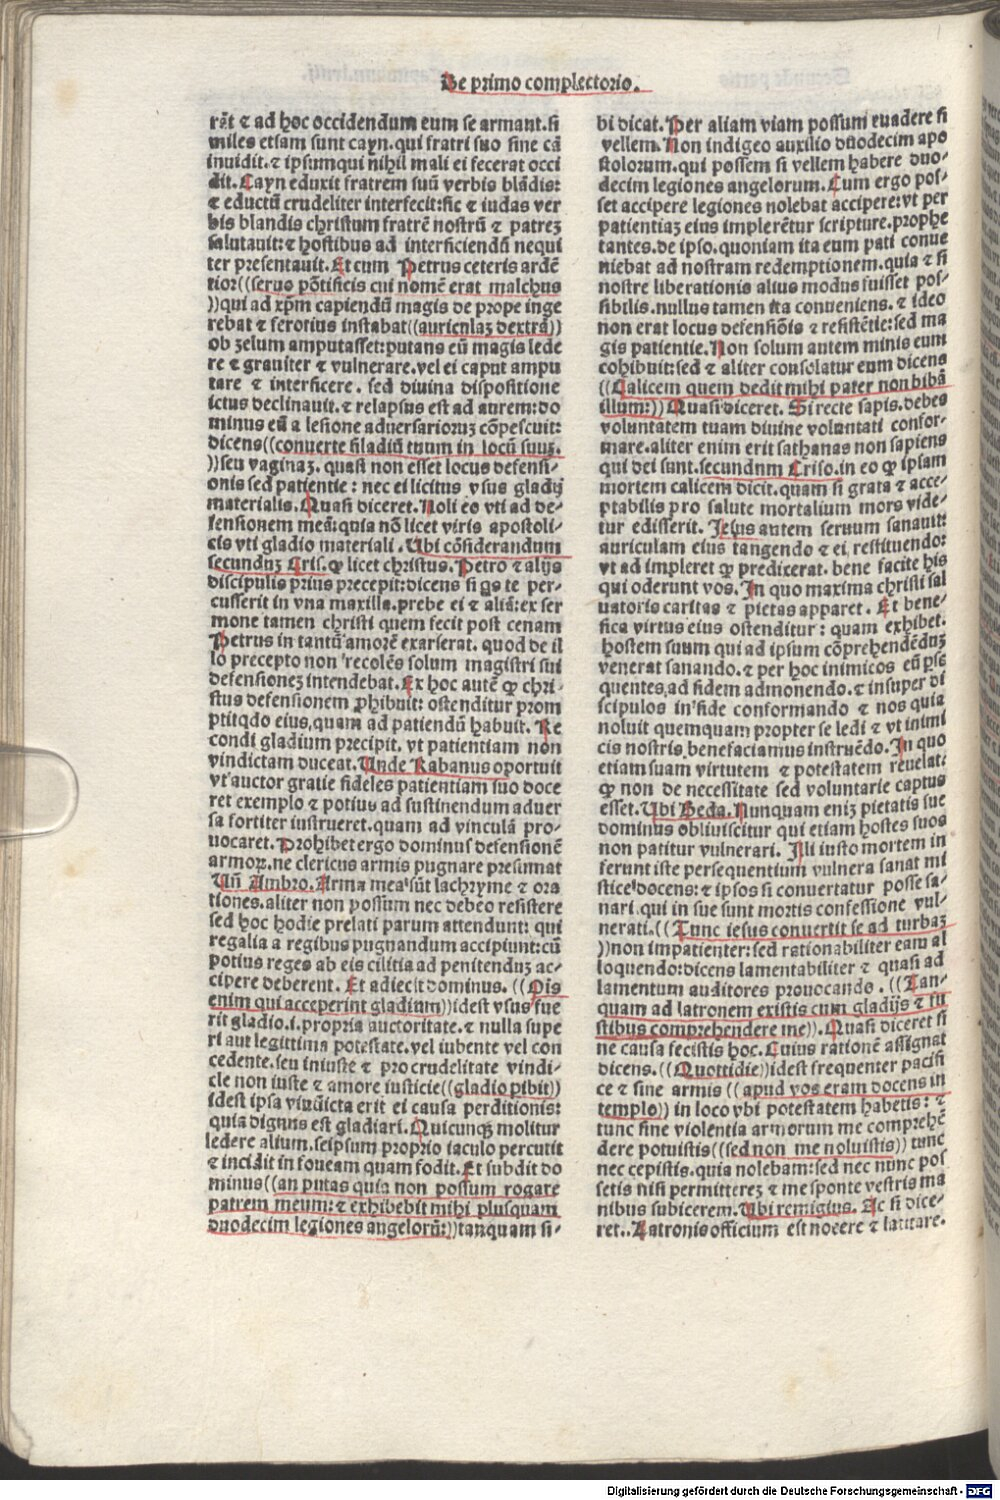 De primo complectorio.
rāt ⁊ ad hoc occidendum eum se armant. si
miles etiam sunt cayn. qui fratri suo sine cā
inuidit. ⁊ ipsumqui nihil mali ei fecerat occi
dit. Cayn eduxit fratrem suū verbis blādis:
⁊ eductū crudeliter interfecit: sic ⁊ iudas ver
bis blandis christum fratrē nostrū ⁊ patreꝫ
salutauit: ⁊ hostibus ad interficiendū nequi
ter presentauit. Et cum Petrus ceteris ardē
tior((seruo pōtificis cui nomē erat malchus
))qui ad xp̄m capiendū magis de prope inge
rebat ⁊ ferotius instabat((auriculaꝫ dextrā))
ob zelum amputasset: putans eū magis lede
re ⁊ grauiter ⁊ vulnerare. vel ei caput ampu
tare ⁊ interficere. sed diuina dispositione
ictus declinauit. ⁊ relapsus est ad aurem: do
minus eū a lesione aduersarioruꝫ cōpescuit:
dicens((conuerte gladiū tuum in locū suuꝫ.
))seu vaginaꝫ. quasi non esset locus defensi-
onis sed patientie: nec ei licitus vsus gladij
materialis. Quasi diceret. Noli eo vti ad de-
fensionem meā: quia nō licet viris apostoli-
cis vti gladio materiali. Ubi cōsiderandum
secunduꝫ Cris. ꝙ licet christus. Petro ⁊ alijs
discipulis prius precepit: dicens si q̄s te per-
cusserit in vna maxilla. prebe ei ⁊ aliā: ex ser
mone tamen christi quem fecit post cenam
Petrus in tantū amorē exarserat. quod de il
lo precepto non recolēs solum magistri sui
defensioneꝫ intendebat. Ex hoc autē ꝙ chri-
stus defensionem ꝓhibuit: ostenditur prom
ptitqdo eius, quam ad patiendū habuit. Re
condi gladium precipit. vt patientiam non
vindictam duceat. Unde Rabanus oportuit
vt auctor gratie fideles patientiam suo doce
ret exemplo ⁊ potius ad sustinendum aduer
sa fortiter instrueret. quam ad vinculā pro-
uocaret. Prohibet ergo dominus defensionē
armoꝝ. ne clericus armis pugnare presumat
Un̄ Ambro. Arma mea sūt lachryme ⁊ ora
tiones. aliter non possum nec debeo resistere
sed hoc hodie prelati parum attendunt: qui
regalia a regibus pugnandum accipiunt: cū
potius reges ab eis cilitia ad penitenduꝫ ac-
cipere deberent. Et adiecit dominus. ((Ois
enim qui acceperint gladium))idest vsus fue
rit gladio. i. propria auctoritate. ⁊ nulla supe
ri aut legittima potestate. vel iubente vel con
cedente. seu iniuste ⁊ pro crudelitate vindi-
cle non iuste ⁊ amore iusticie((gladio pibit))
idest ipsa vindicta erit ei causa perditionis:
quia dignus est gladiari. Quicunqꝫ molitur
ledere alium. seipsum proprio iaculo percutit
⁊ incidit in foueam quam fodit. Et subdit do
minus((an putas quia non possum rogare
patrem meum: ⁊ exhibebit mihi plusquam
duodecim legiones angelorū:))tanquam si-
bi dicat. Per aliam viam possum euadere si
vellem. Non indigeo auxilio duodecim apo
stolorum. qui possem si vellem habere duo-
decim legiones angelorum. Cum ergo pos-
set accipere legiones nolebat accipere: vt per
patientiaꝫ eius implerētur scripture. prophe
tantes. de ipso. quoniam ita eum pati conue
niebat ad nostram redemptionem. quia ⁊ si
nostre liberationis alius modus fuisset pos-
sibilis. nullus tamen ita conueniens. ⁊ ideo
non erat locus defensiōis ⁊ resistētie: sed ma
gis patientie. Non solum autem minis eum
cohibuit: sed ⁊ aliter consolatur eum dicens
((Calicem quem dedit mihi pater non bibā
illum:)) Quasi diceret. Si recte sapis. debes
voluntatem tuam diuine voluntati confor-
mare. aliter enim erit sathanas non sapiens
qui dei sunt. secundnm Criso. in eo ꝙ ipsam
mortem calicem dicit. quam si grata ⁊ acce-
ptabilis pro salute mortalium mors vide-
tur edisserit. Jesus autem seruum sanauit:
auriculam eius tangendo ⁊ ei restituendo:
vt ad impleret ꝙ predixerat. bene facite his
qui oderunt vos. In quo maxima christi sal
uatoris caritas ⁊ pietas apparet. Et bene-
fica virtus eius ostenditur: quam exhibet.
hostem suum qui ad ipsum cōprehendēduꝫ
venerat sanando. ⁊ per hoc inimicos eū ꝑse
quentes, ad fidem admonendo. ⁊ insuper di
scipulos in fide conformando ⁊ nos quia
noluit quemquam propter se ledi ⁊ vt inimi
cis nostris benefaciamus instruēdo. In quo
etiam suam virtutem ⁊ potestatem reuelat:
ꝙ non de necessitate sed voluntarie captus
esset. Ubi Beda. Nunquam eniꝫ pietatis sue
dominus obliuiscitur qui etiam hostes suos
non patitur vulnerari. Illi iusto mortem in
ferunt iste persequentium vulnera sanat mi
stice docens: ⁊ ipsos si conuertatur posse sa-
nari. qui in sue sunt mortis confessione vul-
nerati. ((Tunc iesus conuertit se ad turbaꝫ
))non impatienter: sed rationabiliter eam al
loquendo: dicens lamentabiliter ⁊ quasi ad
lamentum auditores prouocando. ((Tan-
quam ad latronem existis cum gladijs ⁊ fu
stibus comprehendere me)). Quasi diceret si
ne causa fecistis hoc. Cuius rationē assignat
dicens. ((Quottidie))idest frequenter pacifi
ce ⁊ sine armis ((apud vos eram docens in
templo)) in loco vbi potestatem habetis: ⁊
tunc sine violentia armorum me comprehē
dere potuistis((sed non me noluistis)) tunc
nec cepistis. quia nolebam: sed nec nunc pos
setis nisi permittereꝫ ⁊ me sponte vestris ma
nibus subicerem. Ubi remigius. Ac si dice-
ret.. Latronis officium est nocere ⁊ latitare.
Digitalisierung gefördert durch die Deutsche Forschungsgemeinschaft - DFG